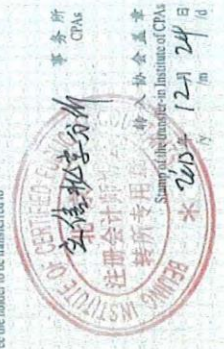 the holder to be transferred to
事务所
CPAs
转入协会盖章
Stamp of the transfer-in Institute of CPAs
2015 12月 24日
/y /m /d
BEIJING INSTITUTE OF CERTIFIED
注册会计师
转所专用章